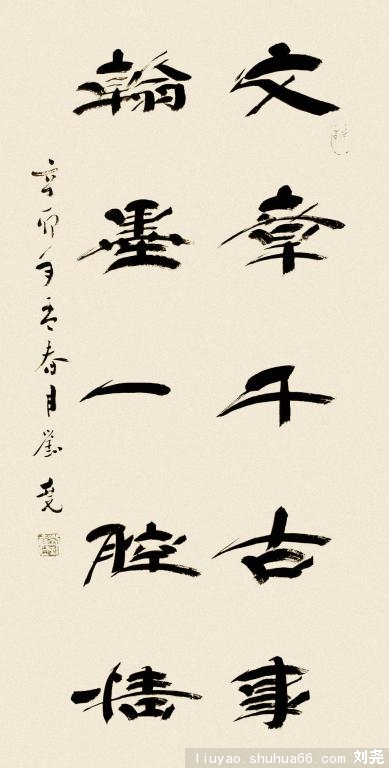 文章千古事
翰墨一腔情
辛卯年孟春月劉堯
liuyao.shuhua66.com 刘尧